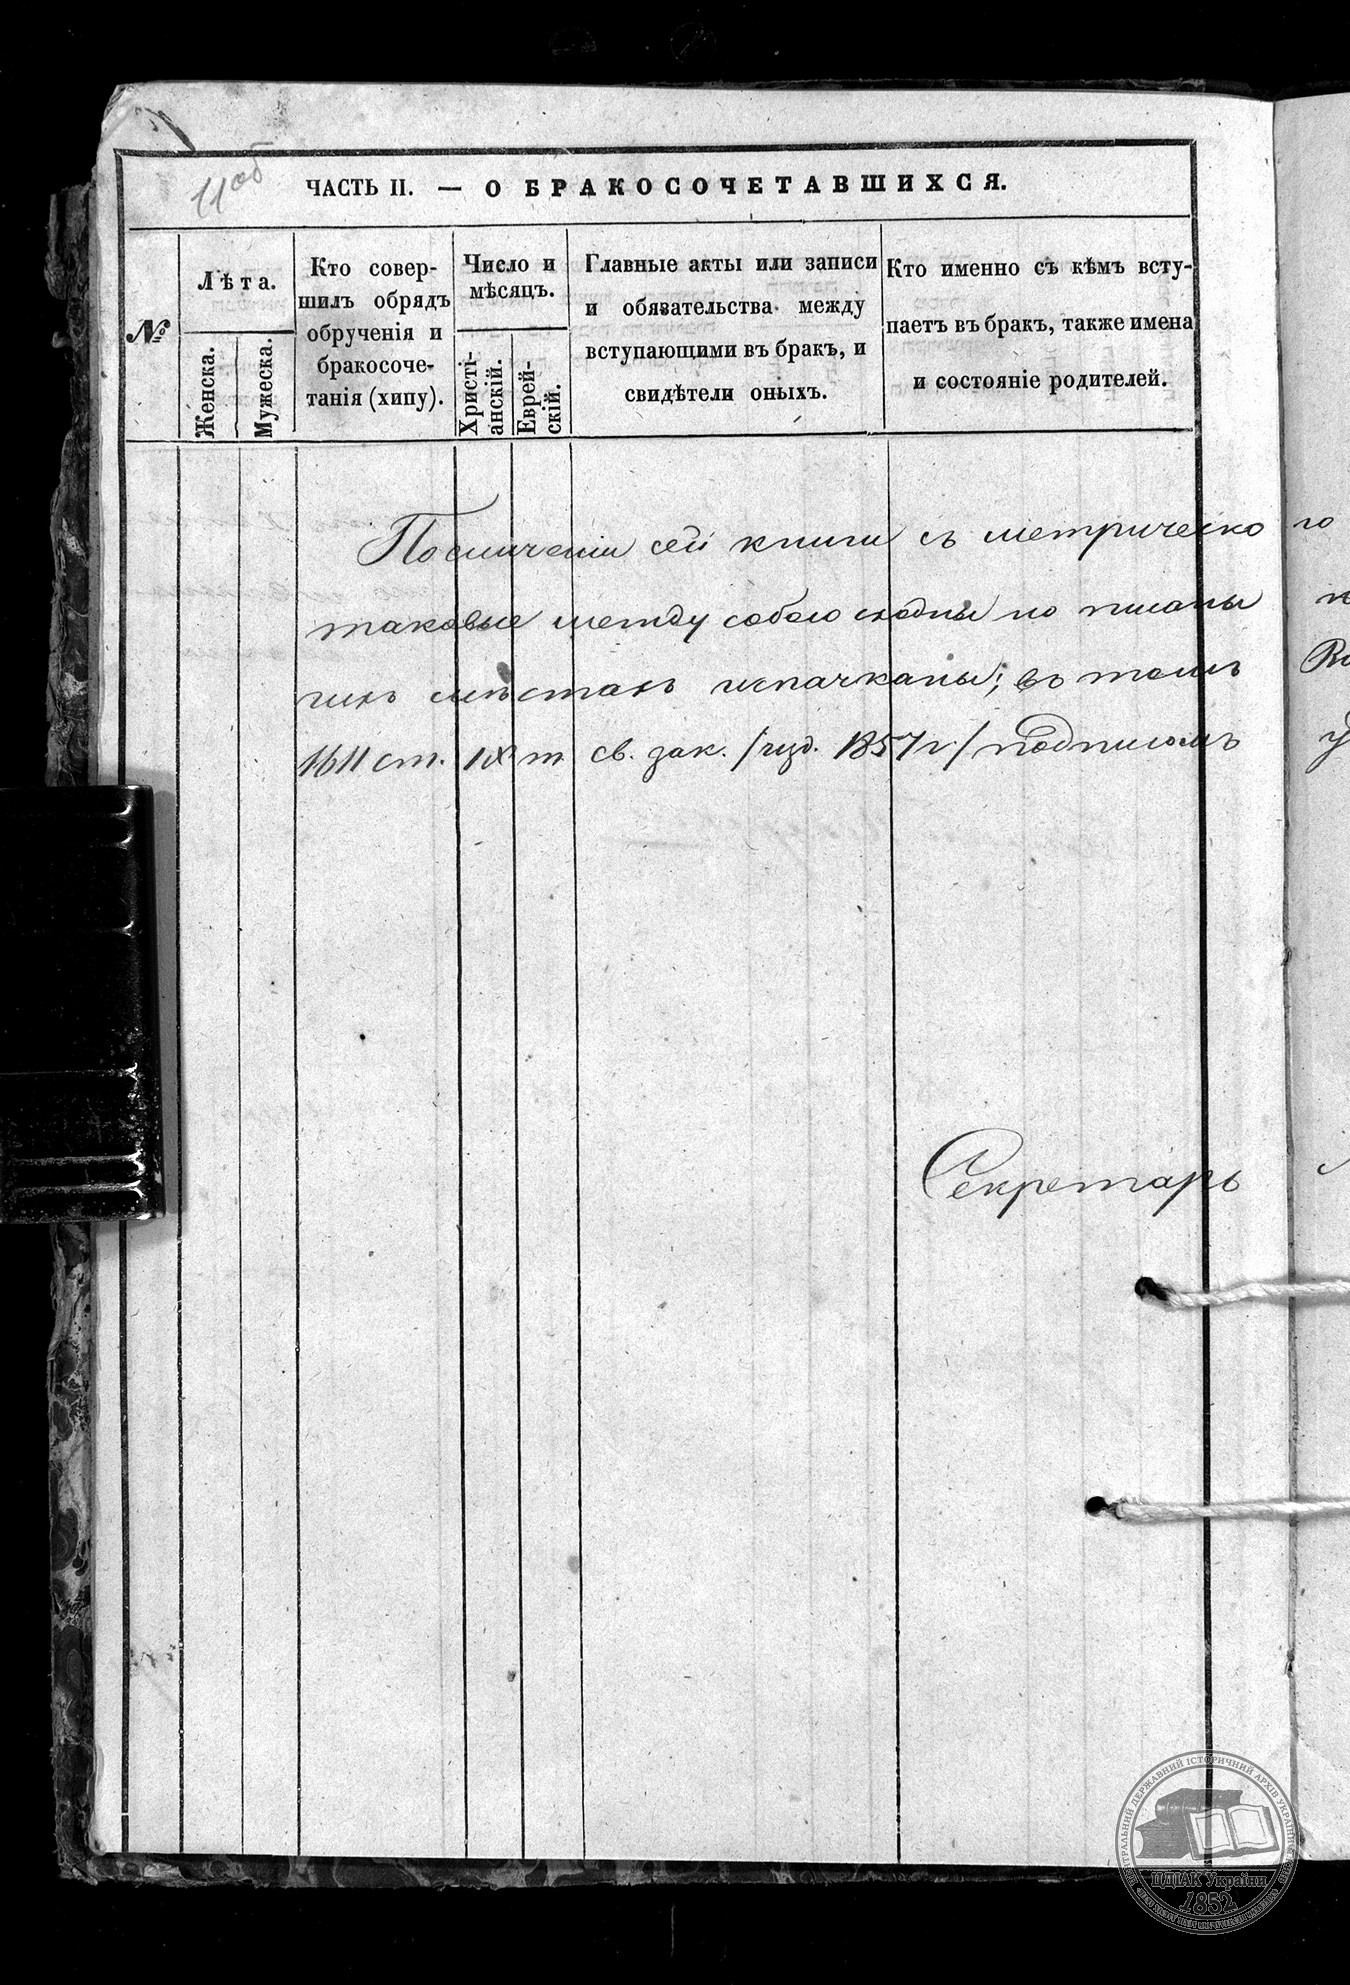 11об
ЧАСТЬ II. — О БРАКОСОЧЕТАВШИХСЯ.
№
Лѣта.
Женска.
Мужеска.
Кто совер-
шилъ обрядъ
обрученія и
бракосоче-
танія (хипу).
Число и
мѣсяцъ.
Христі-
анскій.
Еврей-
скій.
Главные акты или записи
и обязательства между
вступающими въ бракъ, и
свидѣтели оныхъ.
Кто именно съ кѣмъ всту-
паетъ въ бракъ, также имена
и состояніе родителей.
По сличеніи сей книги съ метрическо го
таковые между собою сходны но писаны
гихъ мѣстахъ испачканы; въ томъ
1611 ст. IX т св. зак. /изд. 1857 г./ подписомъ
Секретарь
ЦЕНТРАЛЬНИЙ ДЕРЖАВНИЙ ІСТОРИЧНИЙ АРХІВ УКРАЇНИ
ЦДІАК України
1852